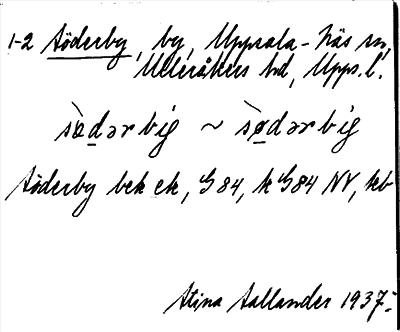 1-2 Söderby, by, Uppsala-Näs sn,
Ulleråkers hd, Upps. l.
sødərbig ~ sødərbig
Söderby bek ek, G 84, k G84 NV, kb
Stina Sallander 1937.